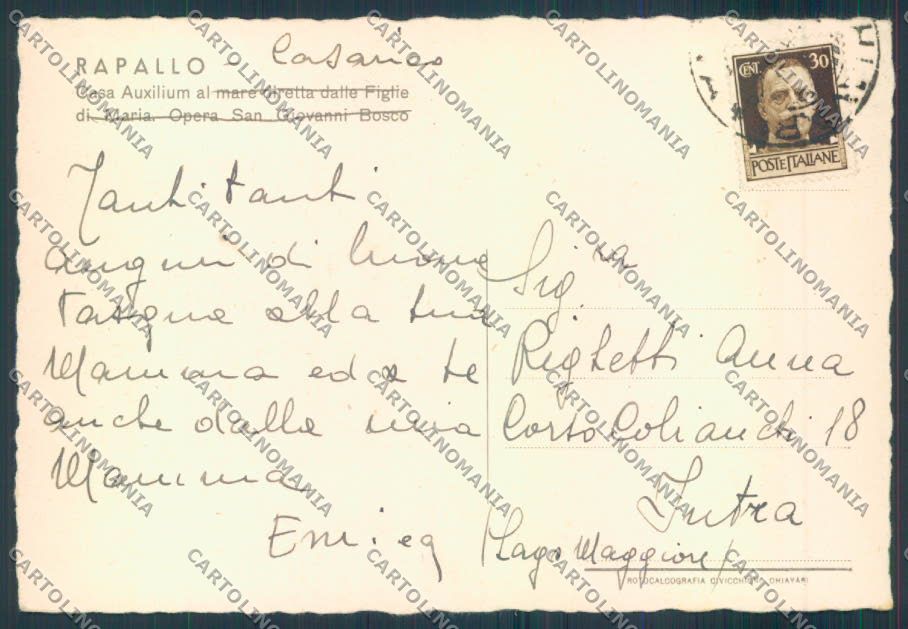 RAPALLO - Casarico
Casa Auxilium al mare diretta dalle Figlie
di Maria. Opera San Giovanni Bosco
CENT. 30
POSTE ITALIANE
Tanti tanti
auguri di buona
Pasqua alla tua
Mamma ed a te
anche dalla mia
Mamma
Enrica
Sig.a
Righetti Anna
Corso Cobianchi 18
Intra
(Lago Maggiore)
ROTOCALCOGRAFIA CIVICCHIONI CHIAVARI
CARTOLINOMANIA